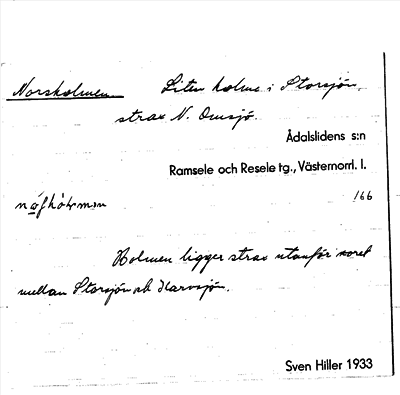 Norsholmen Liten holme i Storsjön,
strax N. Omsjö.
Ådalslidens s:n
Ramsele och Resele tg., Västernorrl. l.
166
Holmen ligger strax utanför noret
mellan Storsjön och Harvsjön.
Sven Hiller 1933